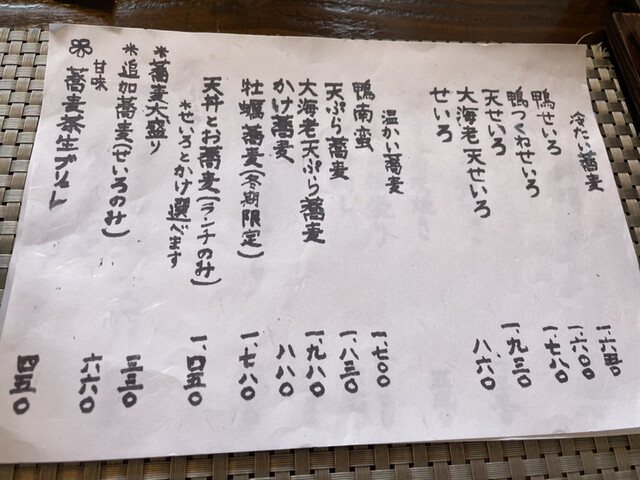 冷たい蕎麦
鴨せいろ 一、六五〇
鴨つくねせいろ 一、六〇〇
天せいろ 一、七八〇
大海老天せいろ 一、九三〇
せいろ 八六〇
温かい蕎麦
鴨南蛮 一、七〇〇
天ぷら蕎麦 一、八三〇
大海老天ぷら蕎麦 一、九八〇
かけ蕎麦 八八〇
牡蠣蕎麦(冬期限定) 一、七八〇
天丼とお蕎麦(ランチのみ) 一、四五〇
*せいろとかけ選べます
*蕎麦大盛り 三三〇
*追加蕎麦(せいろのみ) 六六〇
甘味
蕎麦茶生プリン 四五〇